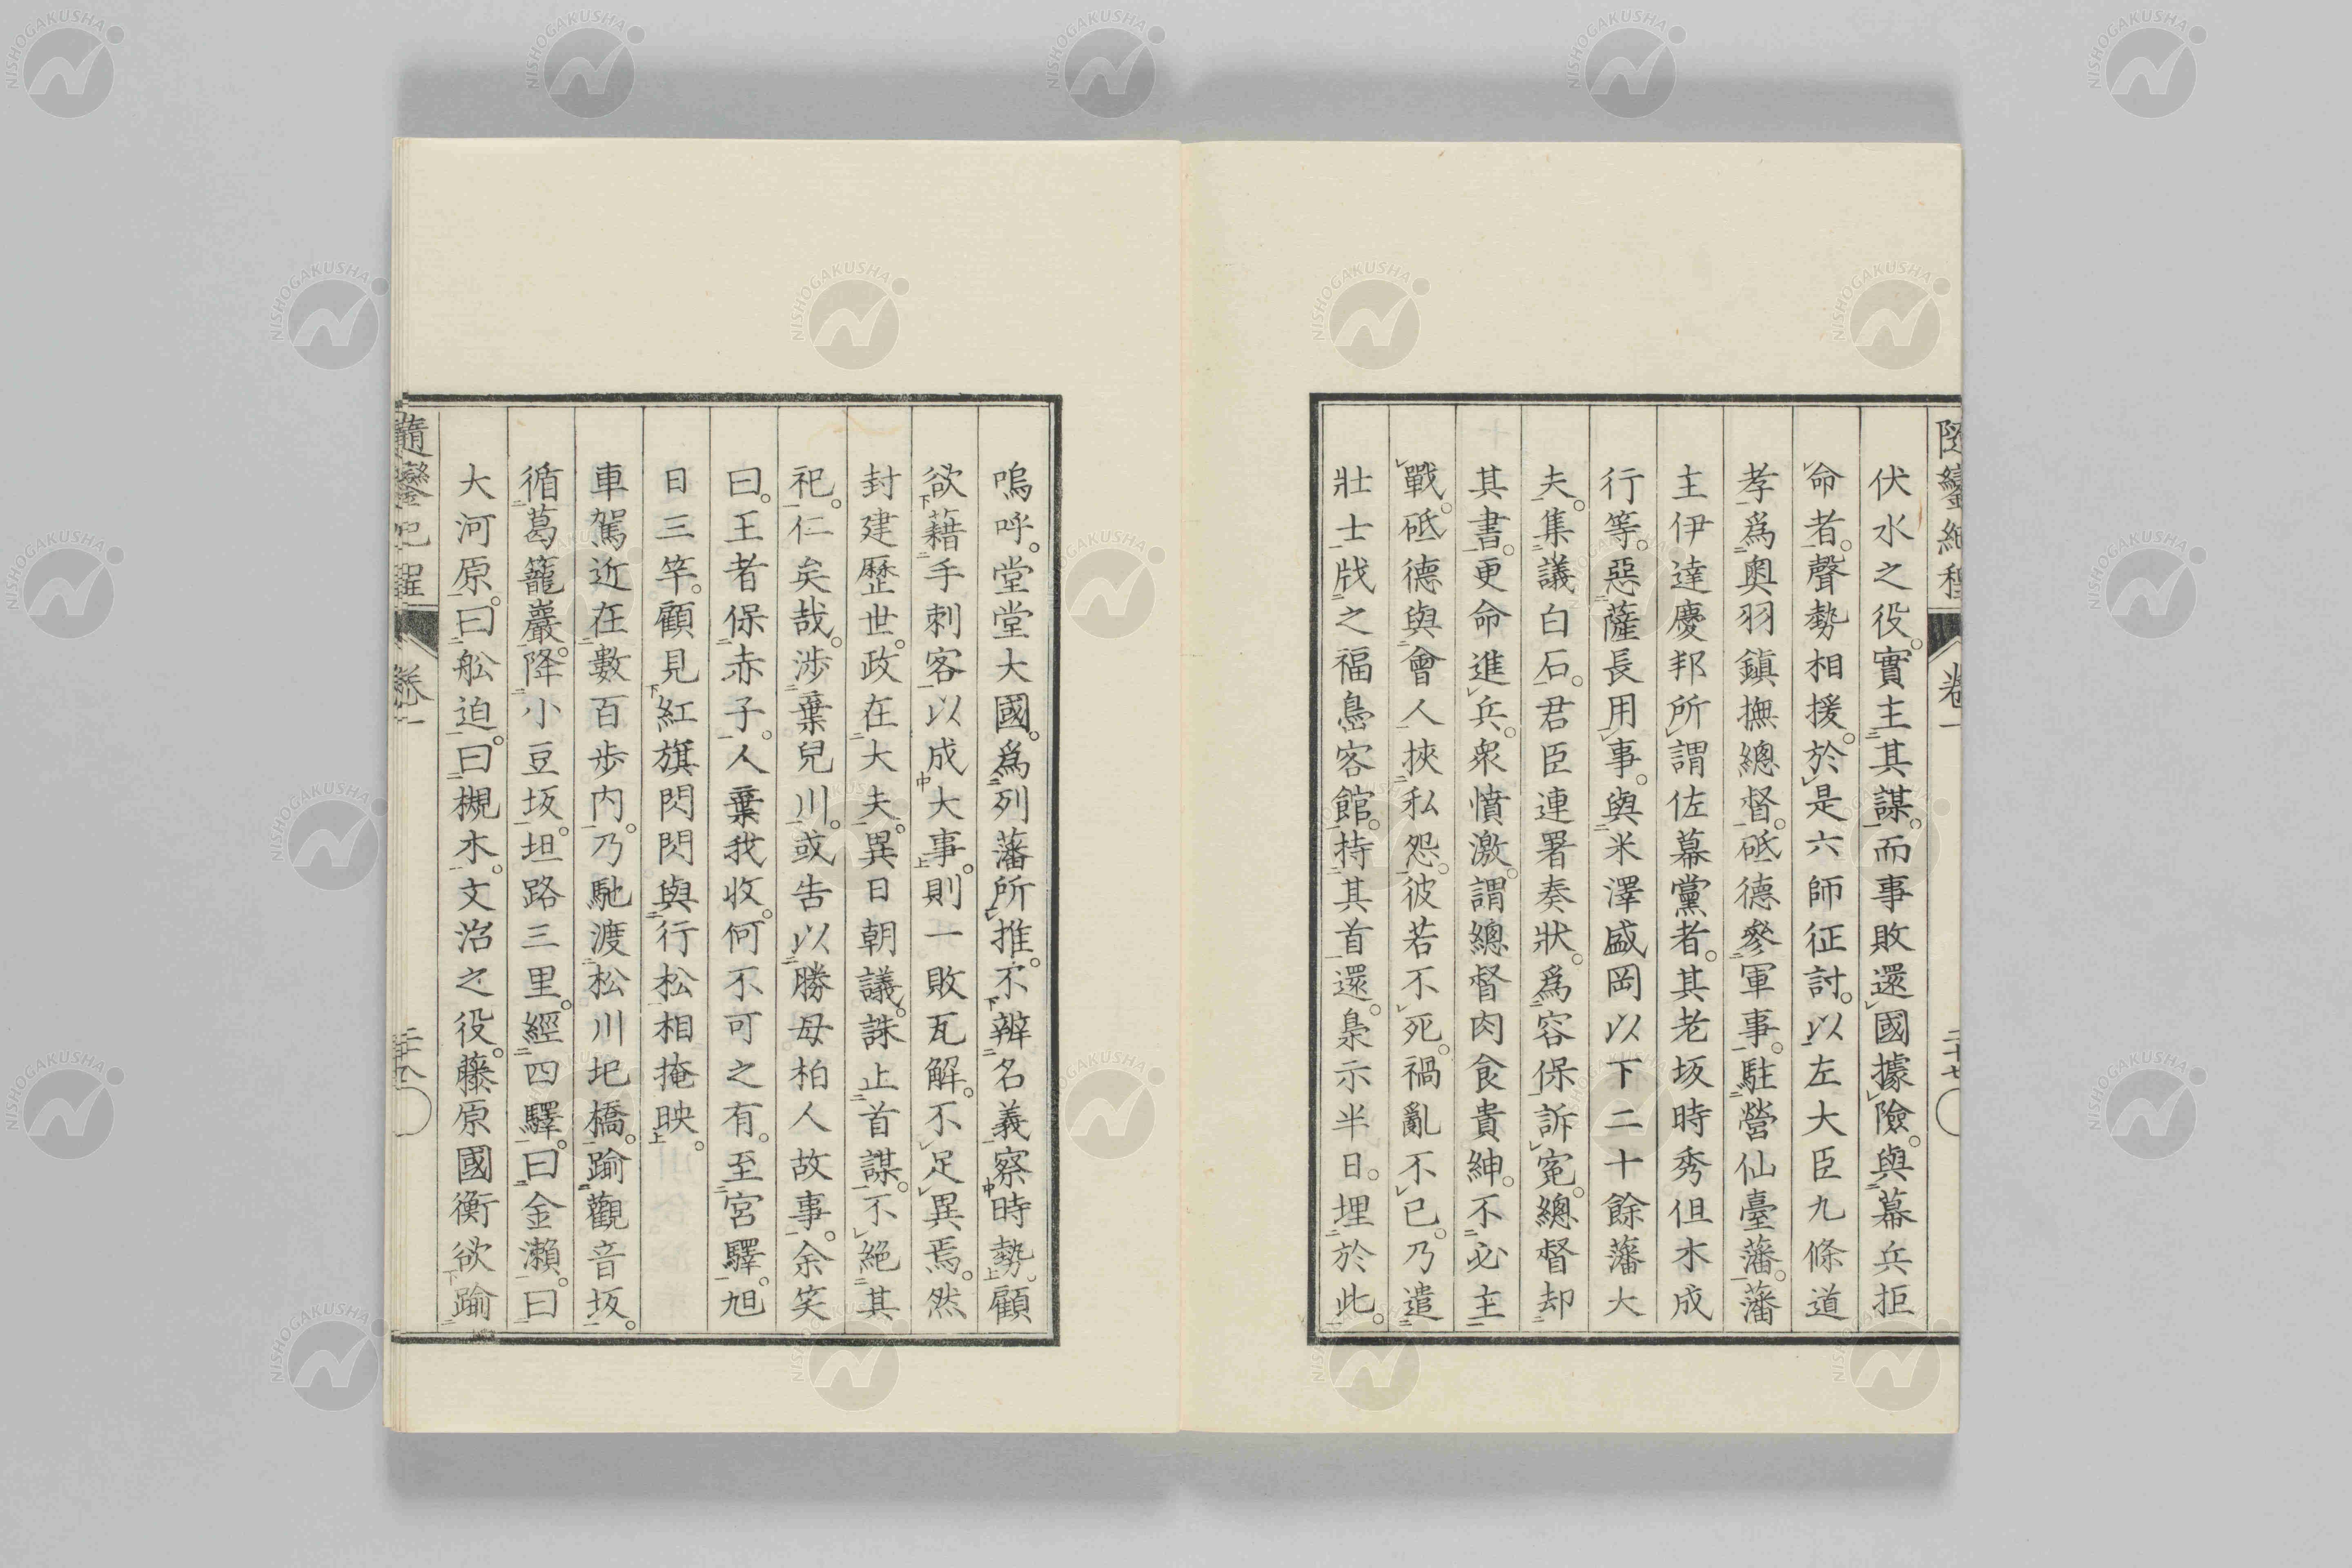 伏水之役。實主其謀。而事敗還國據險。與幕兵拒
命者。聲勢相援。於是六師征討。以左大臣九條道
孝爲奧羽鎮撫總督。砥德參軍事。駐營仙臺藩。藩
主伊達慶邦所謂佐幕黨者。其老坂時秀但木成
行等。惡薩長用事。與米澤盛岡以下二十餘藩大
夫。集議白石。君臣連署奏狀。爲容保訴冤。總督却
其書。更命進兵。衆憤激。謂總督肉食貴紳。不必主
戰。砥德與會人挾私怨。彼若不死。禍亂不已。乃遣
壯士戕之福島客館。持其首還。梟示半日。埋於此。
嗚呼。堂堂大國。爲列藩所推。不辨名義察時勢。顧
欲藉手刺客以成大事。則一敗瓦解。不足異焉。然
封建歷世。政在大夫。異日朝議。誅止首謀。不絕其
祀。仁矣哉。涉棄兒川。或告以勝母柏人故事。余笑
曰。王者保赤子。人棄我收。何不可之有。至宮驛。旭
日三竿。顧見紅旗閃閃與行松相掩映。
車駕近在數百步內。乃馳渡松川圯橋。踰觀音坂。
循葛籠巖。降小豆坂。坦路三里。經四驛。曰金瀨。曰
大河原。曰舩迫。曰槻木。文治之役。藤原國衡欲踰
卷一